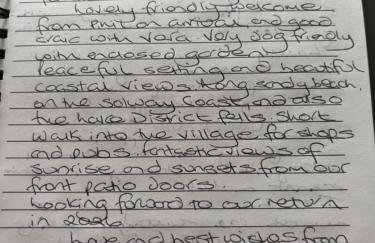 Lovely friendly welcome
from on arrival and good
craic with Vera. Very dog friendly
with enclosed garden
Peaceful setting and beautiful
coastal views. Long sandy beach
on the Solway Coast, and also
the Lake District fells. Short
walk into the village for shops
and pubs. Fantastic views of
sunrise and sunsets from our
front patio doors.
Looking forward to our return
in
and best wishes from